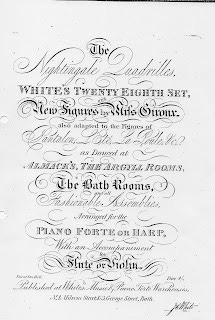 The
Nightingale Quadrilles,
WHITE'S TWENTY EIGHTH SET,
New Figures by Mrs Giroux.
also adapted to the Figures of
Pantalon, L'Été, La Poule, &c.
as Danced at
ALMACK'S, THE ARGYLL ROOMS,
The Bath Rooms,
and all
Fashionable Assemblies,
Arranged for the
PIANO FORTE OR HARP,
With an Accompaniment
Flute or Violin.
Price 4/-
Published at White's Music & Piano Forte Warehouse,
No. 1, Milsom Street & 3, George Street, Bath.